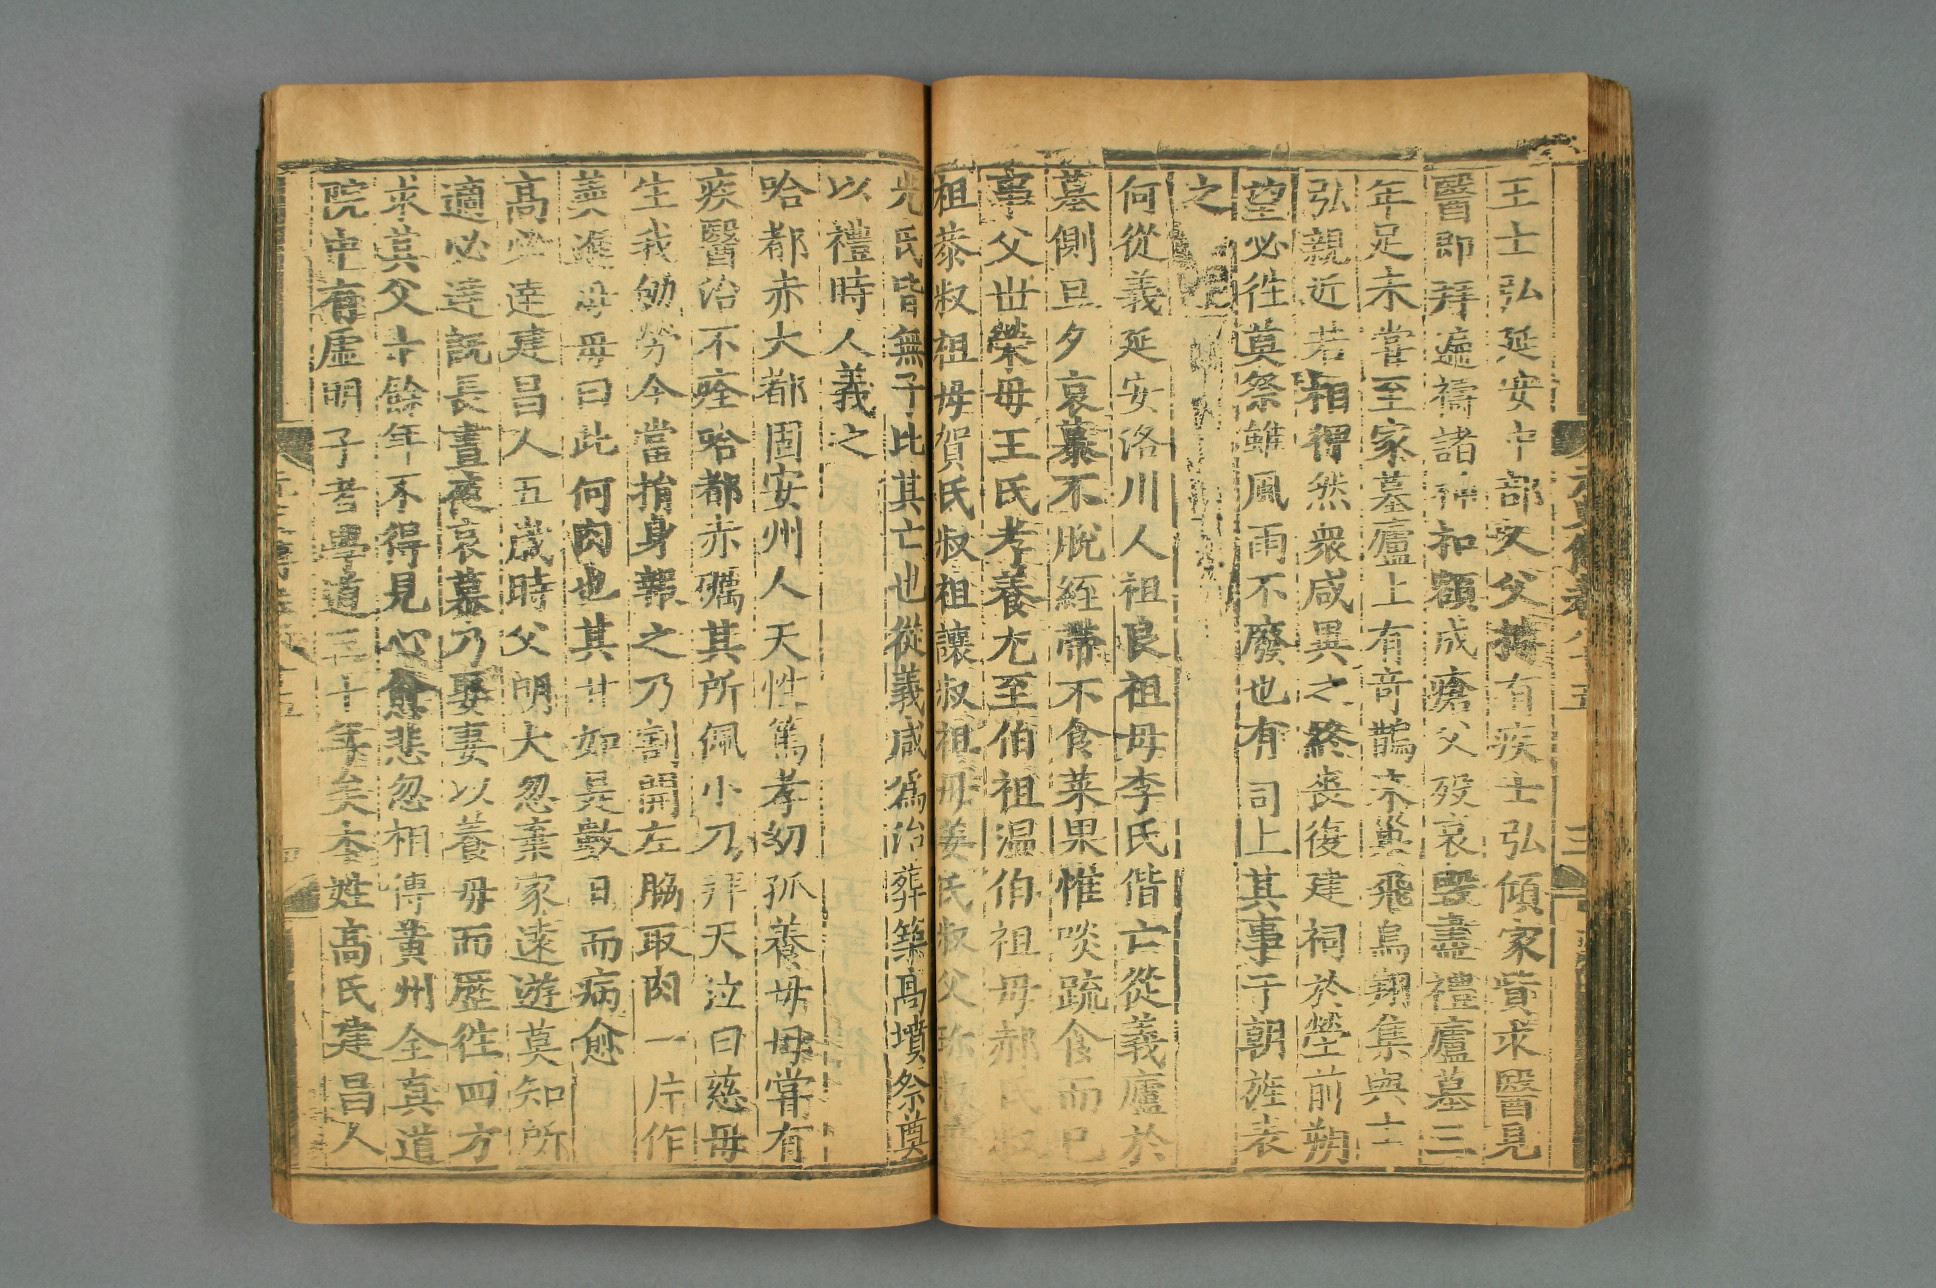 王士弘延安中部人父搏有疾士弘傾家貲求醫見
醫即拜遍禱諸神叩額成瘡父歿哀毀盡禮廬墓三
年足未嘗至家墓廬上有奇鵲來巢飛鳥翔集與士
弘親近若相得然衆咸異之終喪復建祠於塋前朔
望必往奠祭雖風雨不廢也有司上其事于朝旌表
之
何從義延安洛川人祖良祖母李氏偕亡從義廬於
墓側旦夕哀慕不脫絰帶不食菜果惟啖疏食而已
事父世榮母王氏孝養尤至伯祖温伯祖母郝氏叔
祖恭叔祖母賀氏叔祖讓叔祖母姜氏叔父珎叔母
光氏皆無子比其亡也從義咸爲治葬築高墳祭奠
以禮時人義之
哈都赤大都固安州人天性篤孝幼孤養母母嘗有
疾醫治不痊哈都赤礪其所佩小刀拜天泣曰慈母
生我劬勞今當捐身報之乃割開左脇取肉一片作
羹進母母曰此何肉也其甘如是數日而病愈
高必達建昌人五歲時父明大忽棄家遠遊莫知所
適必達既長晝夜哀慕乃娶妻以養母而歷往四方
求其父十餘年不得見心愈悲忽相傳黃州全真道
院中有虛明子者學道三十年矣本姓高氏建昌人